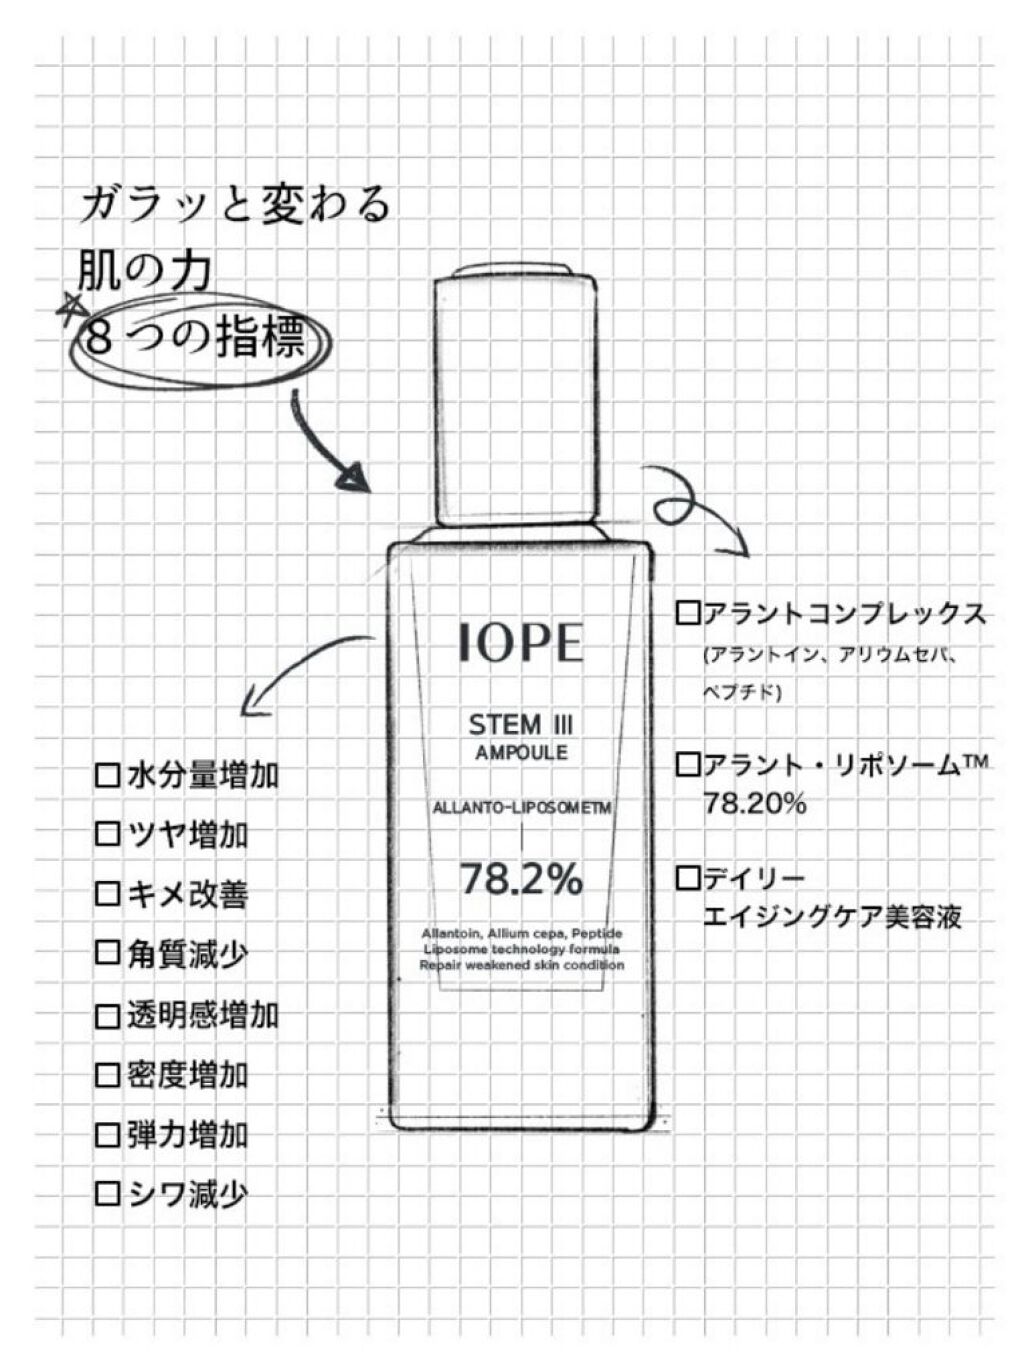 ガラッと変わる
肌の力
8つの指標
IOPE
STEM III
AMPOULE
ALLANTO-LIPOSOMETM
78.2%
Allantoin, Allium cepa, Peptide
Liposome technology formula
Repair weakened skin condition
□水分量増加
□ツヤ増加
□キメ改善
□角質減少
□透明感増加
□密度増加
□弾力増加
□シワ減少
□アラントコンプレックス
(アラントイン、アリウムセパ、
ペプチド)
□アラント・リポソーム™
78.20%
□デイリー
エイジングケア美容液